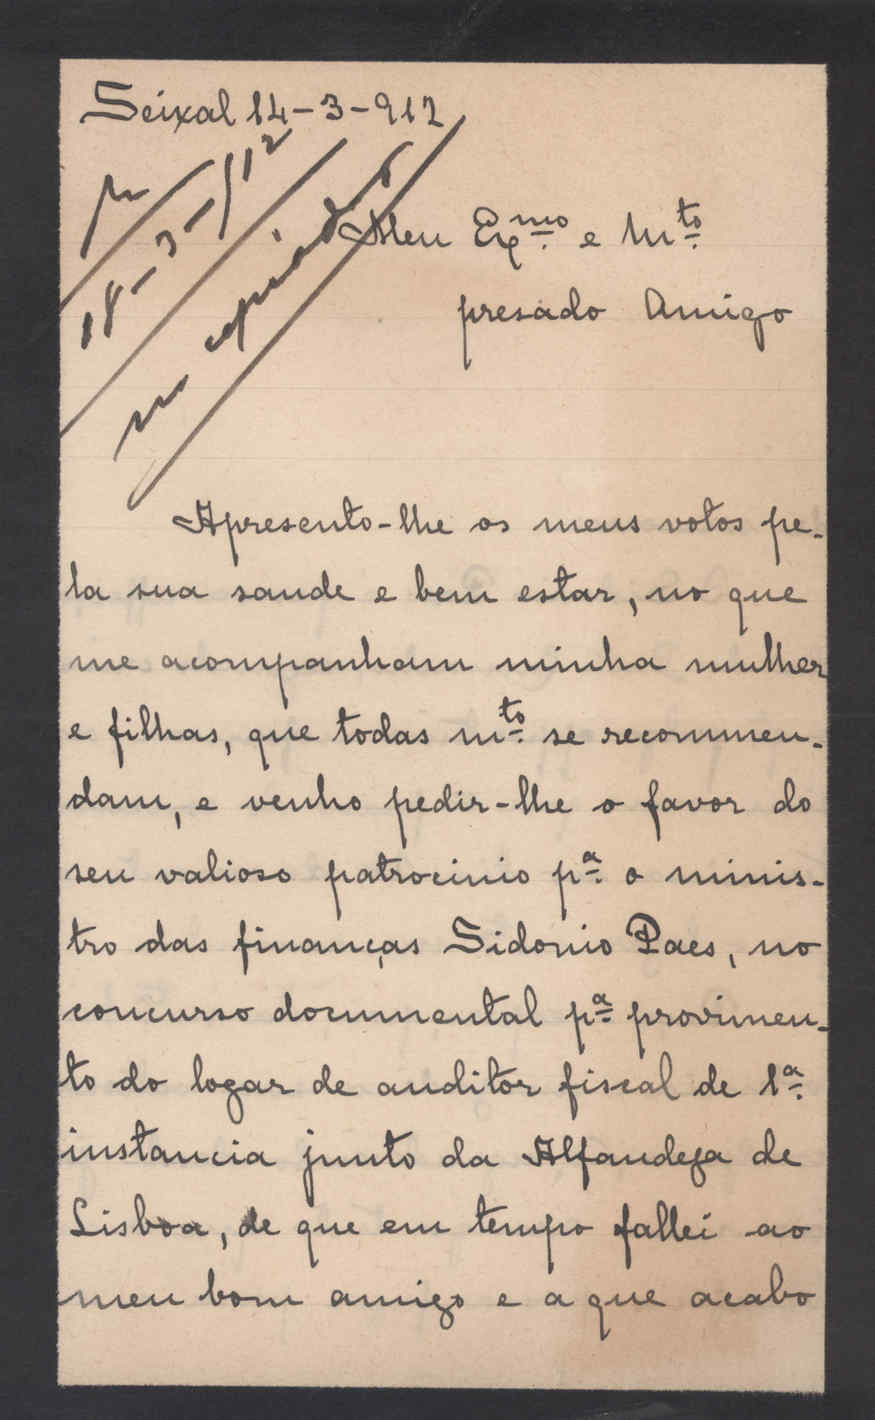 Seixal 14-3-912
R
18-3-912
no copiador
Meu Exmo. e Mto.
presado Amigo
Apresento-lhe os meus votos pe-
la sua saude e bem estar, no que
me acompanham minha mulher
e filhas, que todas mto. se recommen-
dam, e venho pedir-lhe o favor do
seu valioso patrocinio pa. o minis-
tro das finanças Sidonio Paes, no
concurso documental pa. provimen-
to do logar de auditor fiscal de 1a.
instancia junto da Alfandega de
Lisboa, de que em tempo fallei ao
meu bom amigo e a que acabo